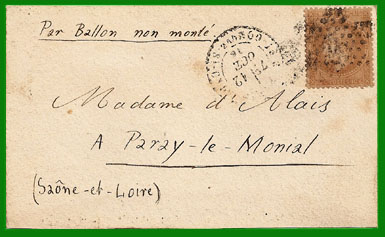 Par Ballon non monté.
Madame d'Alais
A Paray-le-Monial
(Saône-et-Loire)